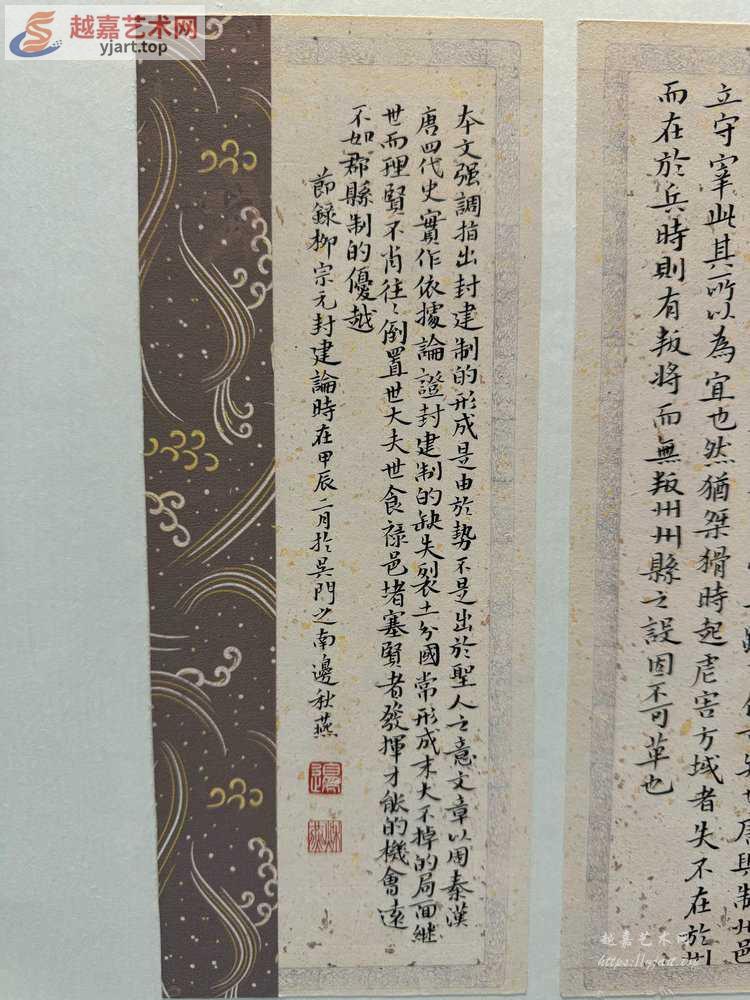 越嘉艺术网
yjart.top
立守宰此其所以為宜也然猶桀猾時起虐害方域者失不在於州
而在於兵時則有叛將而無叛州州縣之設固不可革也
本文强調指出封建制的形成是由於勢不是出於聖人之意文章以周秦漢
唐四代史實作依據論證封建制的缺失裂土分國常形成末大不掉的局面繼
世而理賢不肖往〻倒置世大夫世食祿邑堵塞賢者發揮才能的機會遠
不如郡縣制的優越
節録柳宗元封建論時在甲辰二月於吳門之南邊秋燕
邊
越嘉艺术网
https://yjart.top